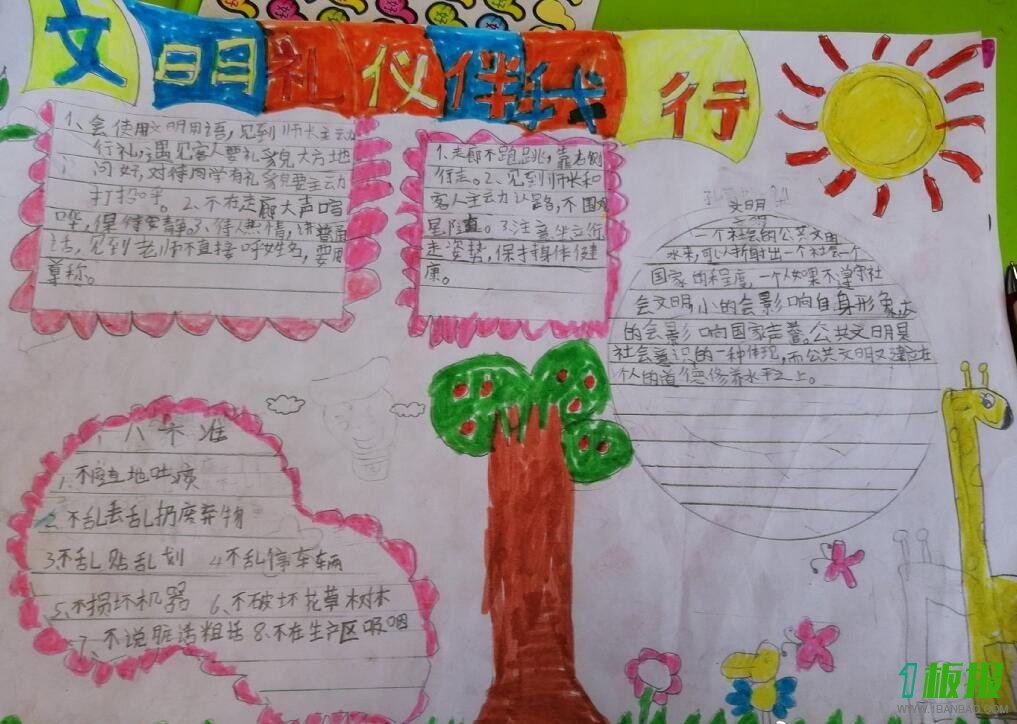 文明礼仪伴我行
1、会使用文明用语，见到师长主动
行礼，遇见客人要礼貌大方地
问好，对待同学有礼貌要主动
打招呼。2、不在走廊大声喧
哗，保持安静。3、待人热情，讲普通
话，见到老师不直接呼姓名，要用
尊称。
1.走廊不跑跳，靠右侧
行走。2、见到师长和
客人主动让路，不围观
尾随。3.注意坐立行
走姿势，保持操作健
康。
文明
一个社会的公共文明
水平，可以折射出一个社会一个
国家的程度，一个人如果不遵守社
会文明，小的会影响自身形象，大
的会影响国家声誉。公共文明是
社会意识的一种体现，而公共文明又建立在
个人的道德修养水平之上。
八不准
1.不随地吐痰
2.不乱丢乱扔废弃物
3.不乱贴乱划 4.不乱停车辆
5.不损坏机器 6.不破坏花草树木
7.不说脏话粗话 8.不在生产区吸烟
1板报
WWW.1BANBAO.COM